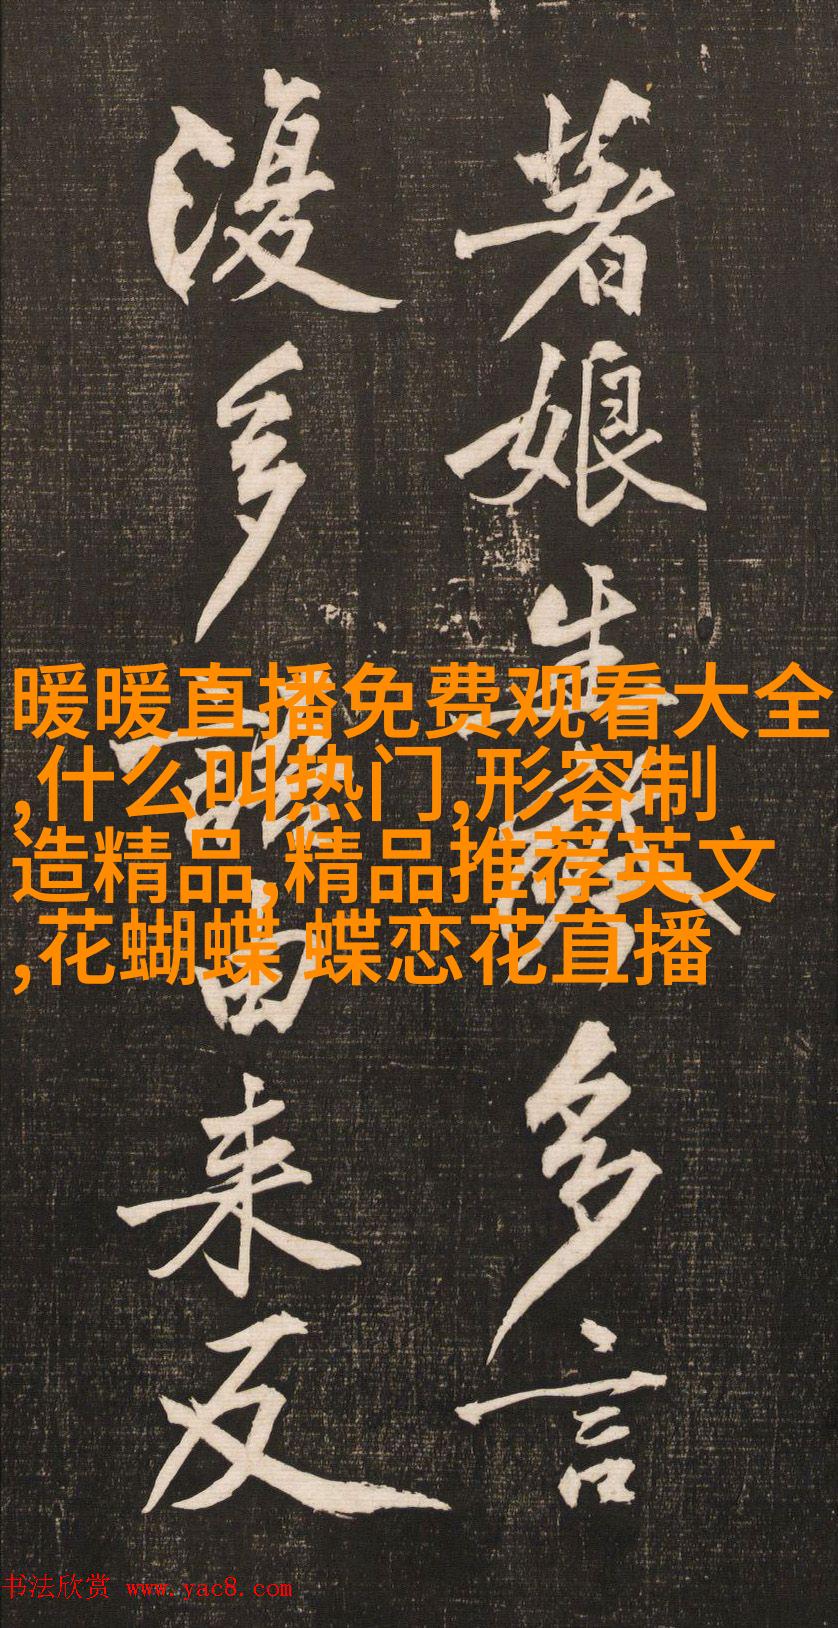 著娘生多言
復多由来反
暖暖直播免费观看大全
,什么叫热门,形容制
造精品,精品推荐英文
,花蝴蝶 蝶恋花直播
书法欣赏 www.yac8.com